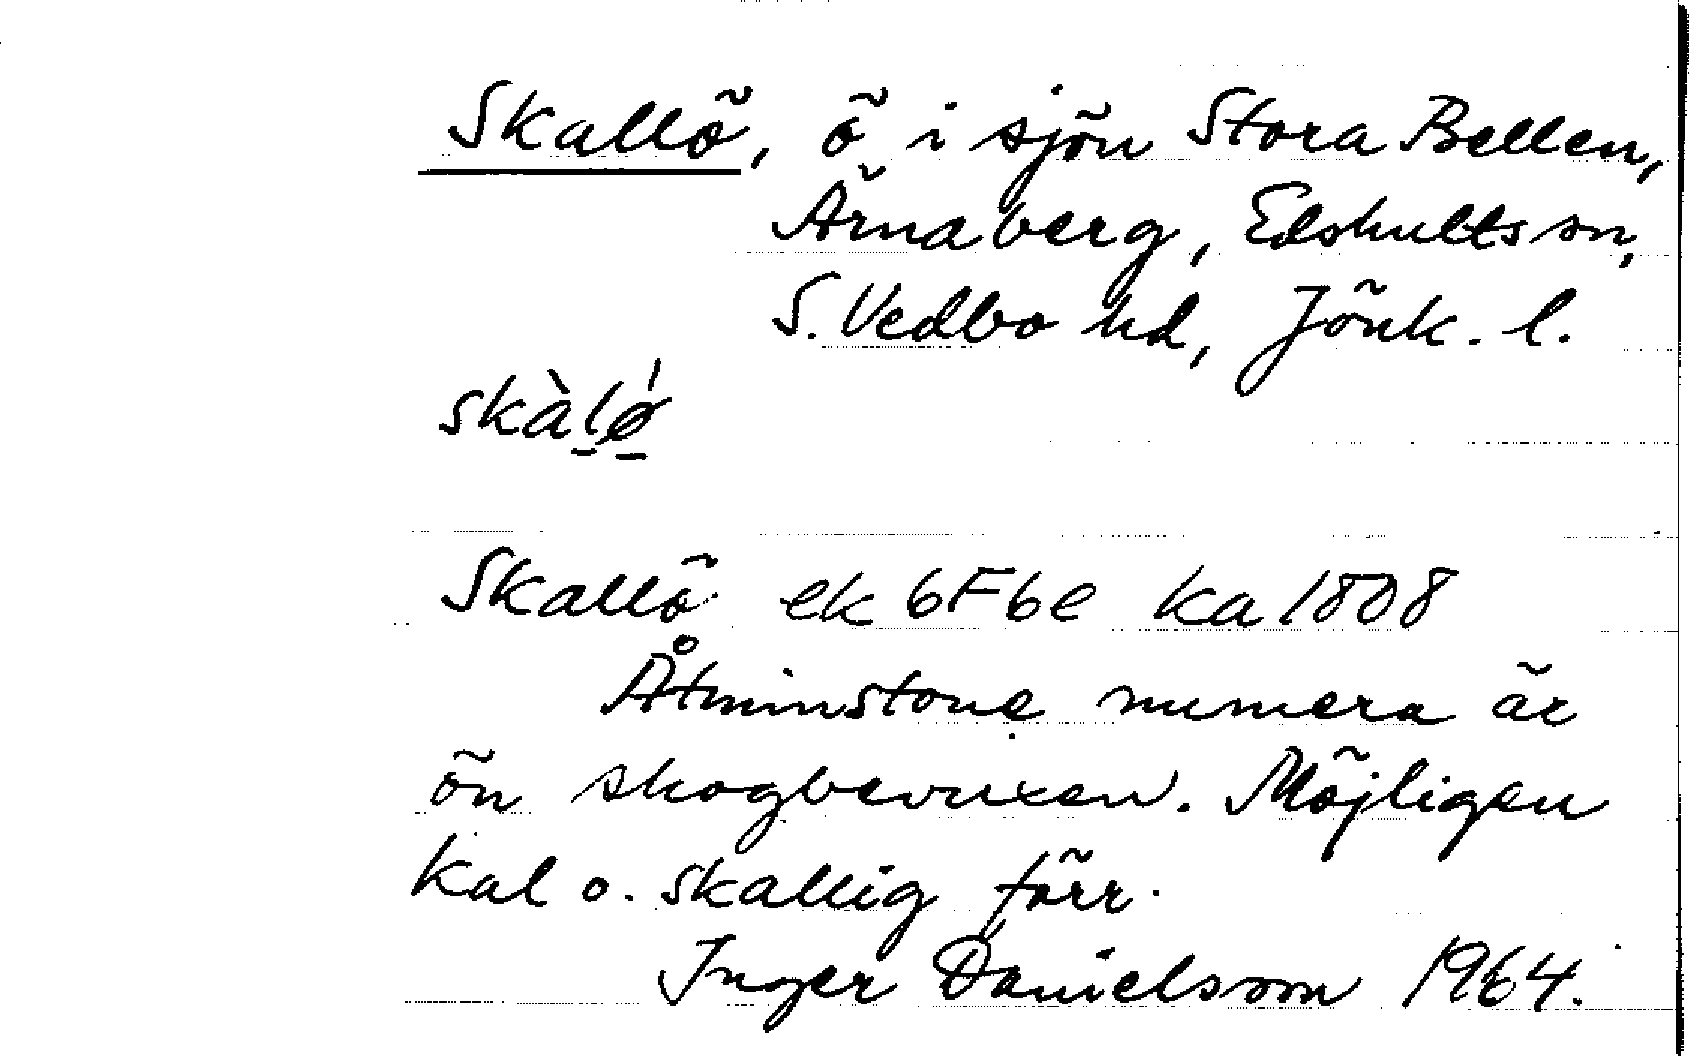 Skallö, ö i sjön Stora Bellen,
Ärnaberg, Edshults sn,
S. Vedbo hd, Jönk. l.
skàlǿ̠
Skallö ek 6F6e ka 1808
Åtminstone numera är
ön skogbevuxen. Möjligen
kal o. skallig förr.
Inger Danielsson 1964.